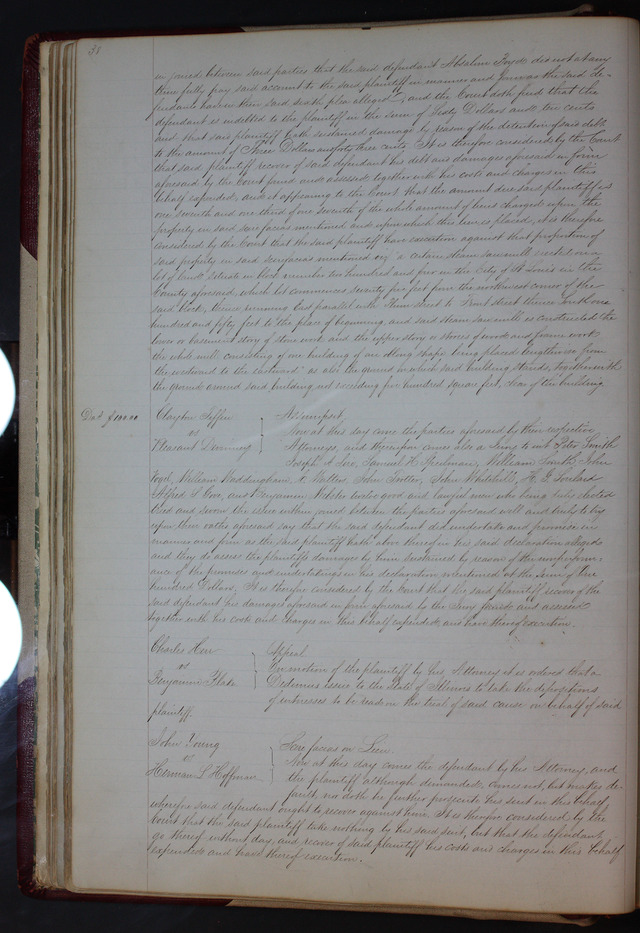 38
in joined between said parties that the said defendant Absalom did not at any
time fully pay said account to the said plaintiff in manner and form as the said de-
fendants have in their said plea alleged, and the Court doth find that the
defendant is indebted to the plaintiff in the sum of Sixty Dollars and ten cents
and that said plaintiff hath sustained damage by reason of the detention of said debt
to the amount of Three Dollars and forty three cents. It is therefore considered by the Court
that said plaintiff recover of said defendant his debt and damages aforesaid in form
aforesaid by the Court found and assessed together with his costs and charges in this
behalf expended, and it appearing to the Court that the amount due said plaintiff is
one seventh and one third of one seventh of the whole amount of liens charged upon the
property in said scire facias mentioned and upon which this lien is placed, it is therefore
considered by the Court that the said plaintiff have execution against that proportion of
said property in said scire facias mentioned viz "a certain steam saw mill erected on a
lot of land situate in block number two hundred and five in the City of St Louis in the
County aforesaid, which lot commences seventy five feet from the northwest corner of the
said block, thence running East parallel with street to Front street thence north one
hundred and fifty feet to the place of beginning, and said steam saw mill is constructed the
lower or basement story of stone work and the upper story or stories of wood and frame work
the whole mill consisting of one building of an oblong shape being placed lengthwise from
the westward to the eastward" as also the ground on which said building stands, together with
the ground around said building not exceeding five hundred square feet, clear of the building
Dad $100.00 Clayton Tiffin
vs
Pleasant
Assumpsit.
Now at this day come the parties aforesaid by their respective
Attorneys, and thereupon comes also a Jury to wit Peter Smith
Joseph A Samuel H Speelman, William Smith John
Vogel, William Waddingham, A. John Trotter, John Whitehill, H. G. Soulard
Alfred T and Benjamin Webster twelve good and lawful men who being duly elected
tried and sworn the issue within joined between the parties aforesaid well and truly to try
upon their oaths aforesaid say that the said defendant did undertake and promise in
manner and form as the said plaintiff hath above thereof in his said declaration alleged
and they do assess the plaintiffs damages by him sustained by reason of the nonperform-
ance of the promises and undertakings in his declaration mentioned at the sum of One
hundred Dollars, It is therefore considered by the Court that the said plaintiff recover of the
said defendant his damages aforesaid in form aforesaid by the Jury found and assessed
together with his costs and charges in this behalf expended and have thereof execution.
Charles
vs
Benjamin
plaintiff.
Appeal
On motion of the plaintiff by his Attorney it is ordered that a
Dedimus issue to the State of Illinois to take the depositions
of witnesses to be read on the trial of said cause on behalf of said
John Young
vs
Herman L Hoffman
Scire facias on Lien.
Now at this day comes the defendant by his Attorney, and
the plaintiff although demanded, comes not, but makes de-
fault, nor doth he further prosecute his suit in this behalf,
wherefore said defendant ought to recover against him. It is therefore considered by the
Court that the said plaintiff take nothing by his said suit, but that the defendant
go thereof without day, and recover of said plaintiff his costs and charges in this behalf
expended and have thereof execution.